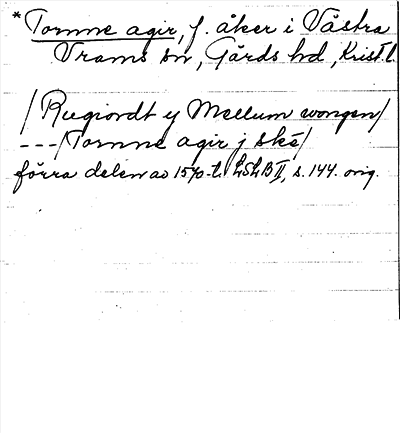 *Tornne agir, f. åker i Västra
Vrams sn, Gärds hd, Krist. l.
/Rugiordt y Mellum wongen/
---/Tornne agir j ské/
förra delen av 1570-t. LSLB II, s. 144. orig.